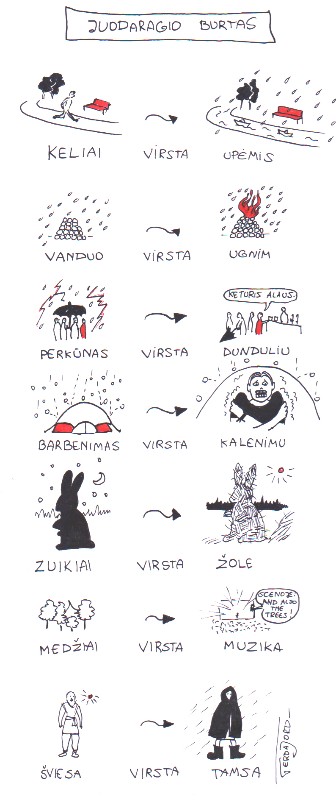 JUODARAGIO BURTAS
KELIAI VIRSTA UPĖMIS
VANDUO VIRSTA UGNIM
KETURIS ALAUS.
PERKŪNAS VIRSTA DUNDULIU
BARBENIMAS VIRSTA KALENIMU
ZUIKIAI VIRSTA ŽOLE
SCENOJE:
AND ALSO
THE
TREES!
MEDŽIAI VIRSTA MUZIKA
ŠVIESA VIRSTA TAMSA